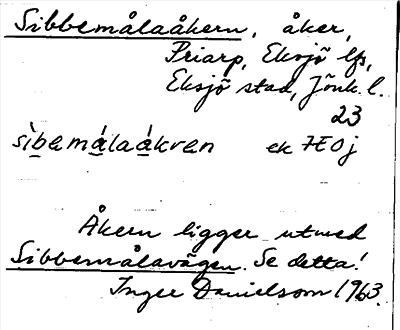 Sibbemålaåkern, åker,
Priarp, Eksjö lfs,
Eksjö stad, Jönk. l.
23
sìbemálaákren ek 7E0j
Åkern ligger utmed
Sibbemålavägen. Se detta!
Inger Danielsson 1963.